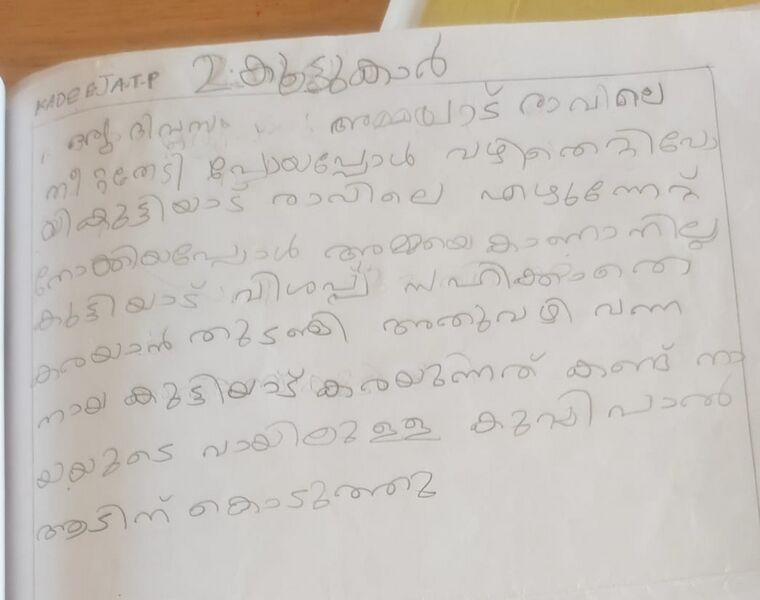 KADEEJA.T.P 2. കൂട്ടുകാർ
ഒരു ദിവസം അമ്മയാട് രാവിലെ
തീറ്റതേടി പോയപ്പോൾ വഴിതെറ്റിപോ
യികുട്ടിയാട് രാവിലെ എഴുന്നേറ്റ്
നോക്കിയപ്പോൾ അമ്മയെകാണാനില്ല
കുട്ടിയാട് വിശപ്പ് സഹിക്കാതെ
കരയാൻ തുടങ്ങി അതുവഴി വന്ന
നായ കുട്ടിയാട് കരയുന്നത് കണ്ട് നാ
യയുടെ വായിലുള്ള കുപ്പിപാൽ
ആടിന് കൊടുത്തു